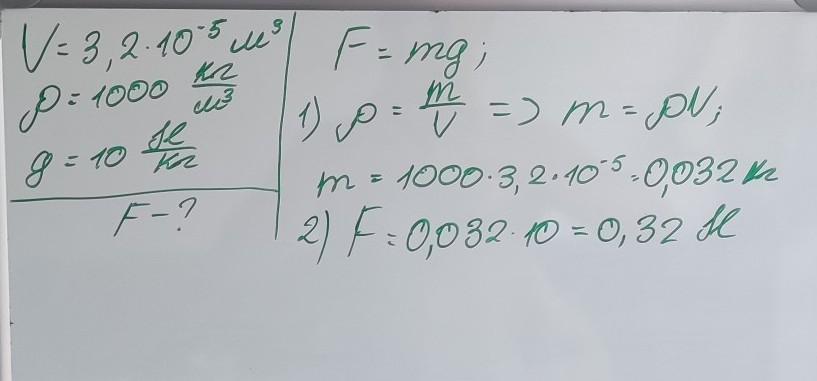 V = 3,2·10⁻⁵ м³
ρ = 1000 кг/м³
g = 10 Н/кг
F - ?
F = mg;
1) ρ = m/V => m = ρV;
m = 1000·3,2·10⁻⁵ = 0,032 кг
2) F = 0,032·10 = 0,32 Н